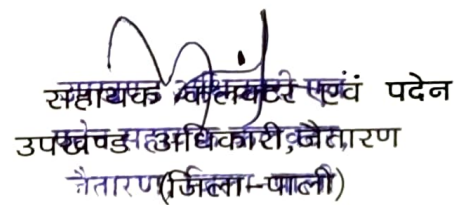 सहायक कलक्टर एवं पदेन
उपखण्ड अधिकारी, जैतारण
जैतारण (जिला-पाली)